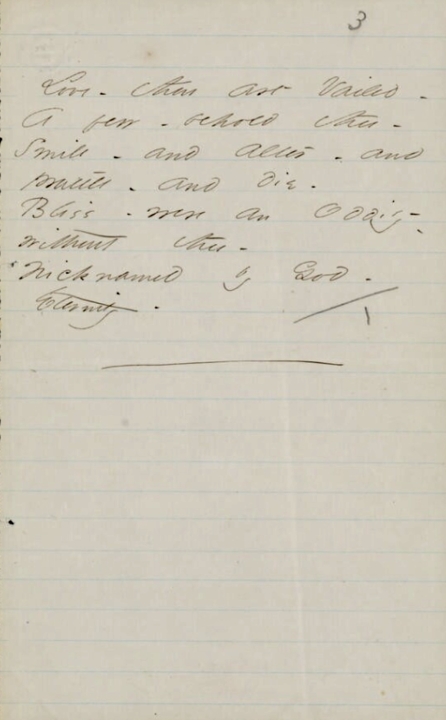 3
Love - thou art Vailed -
A few - behold thee -
Smile - and alter - and
prattle - and die -
Bliss - were an Oddity -
without thee -
Nicknamed by God -
Eternity -